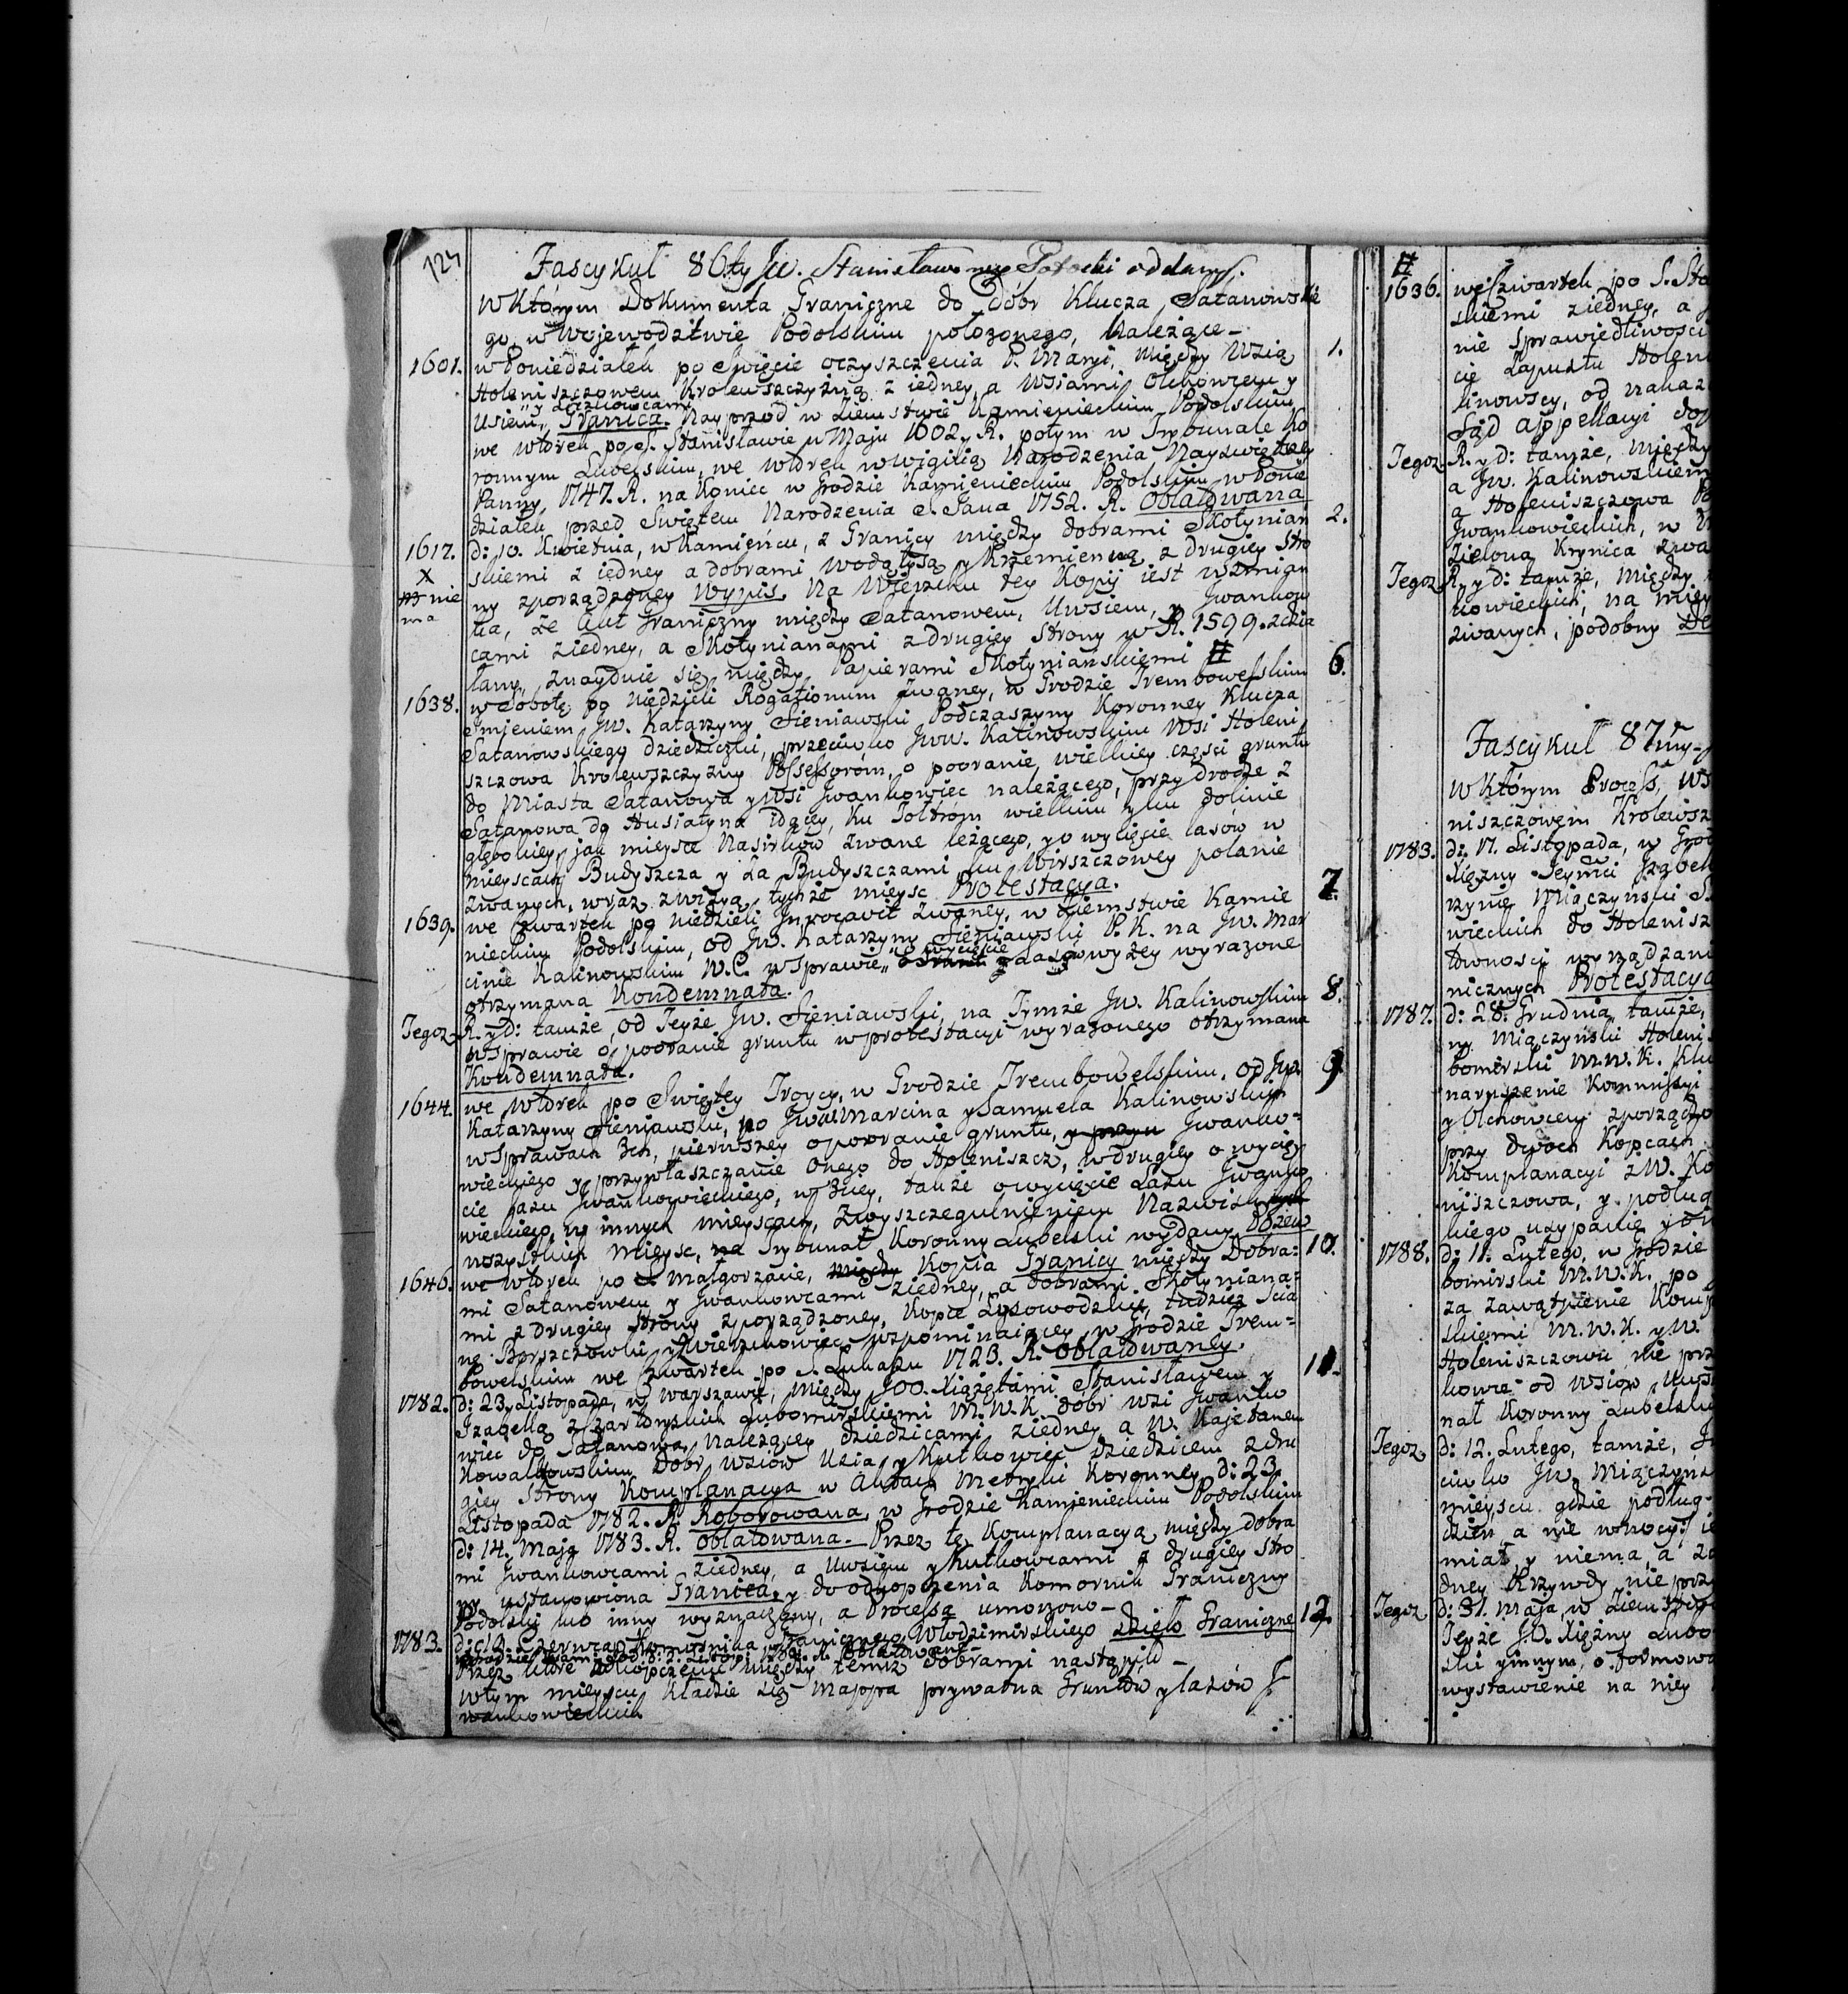 123
Fascykuł 86ty JW. Stanisławowey Potocki oddany.
w Którym Dokumenta Graniczne do dóbr Klucza Satanowskie
go, w Wojewodztwie Podolskim położonego, należące –
1601. w Poniedziałek po Święcie oczyszczenia P. Maryi, między Wsią 1.
Holeniszczowem Krolewszczyzną z iedney, a Wsiami Olchowcem y
y Łaznowcami
Usiem, Granica. Nayprzód w Ziemstwie Kamienieckim Podolskim
we wtorek po S. Stanisławie w Maju 1602. R. potym w Trybunale Ko
ronnym Lubelskim, we wtorek w wigilią Narodzenia Nayświętszey
Panny 1747. R. na koniec w Grodzie Kamienieckim Podolskim w Ponie
działek przed Swiętem Narodzenia S. Jana 1752. R. Oblatowana
1617. d: 10. Kwietnia, w Kamieńcu, z Granicy między dobrami Skotynian 2.
X
skiemi z iedney a dobrami Wodą łysą y Krzemienną z drugiey Stro
nie
ny zporządzoney Wypis. Na Wierzchu tey Kopij iest wzmian
ma
ka, że Akt Graniczny między Satanowem, Uwsiem, y Jwankow
cami ziedney, a Skotynianami z drugiey Strony w R. 1599. zdzia
łany, znayduie się między Papierami Skotyniańskiemi #
1638. w Sobotę po Niedzieli Rogationum zwaney, w Grodzie Trembowelskim 6.
Jmieniem JW. Katarzyny Sieniawski Podczaszyny Koronney Klucza
Satanowskiego dziedziczki, przeciwko JWW. Kalinowskim Wsi Holeni
szczowa Krolewszczyzny Possessorom, o pooranie wielkiey części gruntu
do Miasta Satanowa y Wsi Jwankowiec należącego, przy drodze z
Satanowa do Husiatyna idącey, ku Tołtrom wielkim y ku dolinie
głębokiey, jak mieysce Nasirków zwane leżącego, y o wycięcie lasów w
mieyscach Budyszcza y Za Budyszczami ku Wirszczowey polanie
zwanych, wraz zwizyą tychże mieysc Protestacya.
1639. we czwartek po Niedzieli Jnvocavit zwaney, w Ziemstwie Kamie 7.
nieckim Podolskim, od JW. Katarzyny Sieniawski P. K. na JW. Mar
o wycięcie
cinie Kalinowskim W. C. w Sprawie lasów wyżey wyrażone
otrzymana Kondemnata.
Tegoz R. y d: tamże, od Teyże JW. Sieniawski, na Tymże JW. Kalinowskim 8.
w sprawie o pooranie gruntu w protestacyi wyrażonego otrzymana
Kondemnata.
1644. we Wtorek po Swiętey Troycy, w Grodzie Trembowelskim, od JW. 9
Katarzyny Sieniawski, po JWW. Marcina y Samuela Kalinowskich
w Sprawach 3ch, pierwszey o pooranie gruntu, Jwanko-
wieckiego y przywłaszczanie onego do Holeniszcz, w drugiey o wycię
cie lasu Jwankowieckiego, w 3ciey, także o wycięcie Lasu Jwanko
wieckiego, w innych mieyscach, z wyszczegulnieniem Nazwisk
wszystkich mieysc, na Trybunał Koronny Lubelski wydany Pozew
1646. we Wtorek po S. Małgorzacie, między Kopia Granicy między Dobra: 10.
mi Satanowem y Jwankowcami ziedney, a dobrami Skotyniana:
mi z drugiey strony zporządzoney, Kopce Łysowodzkie, tudzież Scia
nę Borszczowki y Zwierzchowiec wspominaiącey, w Grodzie Trem-
bowelskim we Czwartek po S. Łukaszu 1723. R. Oblatowaney.
1782. d: 23. Listopada, w Warszawie, między JOO. Xiążętami Stanisławem y 11.
Jzabellą z Czartoryskich Lubomirskiemi M. W. K. dóbr Wsi Jwanko
wiec do Satanowa należącey dziedzicami ziedney, a W. Kajetanem
Kowalkowskim Dobr Wsiów Usia y Kutkowiec dziedzicem z dru
giey strony Komplanacya w Aktach Metryki Koronney d: 23.
Listopada 1782. R. Roborowana, w Grodzie Kamienieckim Podolskim
d: 14. Maja 1783. R. oblatowana. Przez tę Komplanacyą między dobra
mi Jwankowcami ziedney, a Uwsiem y Kutkowcami z drugiey Stro
ny ustanowiona Granica, y do odkopczenia Komornik Graniczny
Podolski lub inny wyznaczony, a Processa umorzono –
1783. d: Czerwca Komornika Granicznego Włodzimirskiego Dzieło Graniczne 12.
Przez które odkopczenie między temiż Dobrami nastąpiło –
w tym mieyscu Kładzie się Mappa prywatna Gruntów y lasów J
wankowieckich
#
1636. we Czwartek po S. Sta
skiemi ziedney, a
nie Sprawiedliwości
cie Zapustu Holeni
linowscy, od nakaz
Sąd appellacyi dop
Tegoz R. y d: tamże, między
a JW. Kalinowskiem
a Holeniszczowa
Jwankowieckich, w
Zielona Krynica zwa
Tegoz R. y d: tamże, między
kowieckich, na miey
zwanych, podobny De
Fascykuł 87my
w Którym Process, Ws
niszczowem Krolewsz
1783. d: 17. Listopada, w Grod
Xiężny Jeymci Jzabel
rzynie Miączyński S
wieckich do Holenisz
townosci wyrządzani
nicznych Protestacya
1787. d: 28. Grudnia, tamże,
ny Miączyński Holeni
bomirski M. W. K. Klu
naruszenie Kommissyi
y Olchowcem zporządzo
przy dwóch Kopcach
Komplanacyi z W. Ko
niszczowa, y podług
kiego usypanie y
1788. d: 11. Lutego, w Grodzie
bomirski M. W. K. po
za zawątpienie Komp
skiemi M. W. K. y W.
Holeniszczowu nie prz
kowie od Wsiow
nał Koronny Lubelski
Tegoz d: 12. Lutego, tamże,
ciwko JW. Miączyńs
mieyscu gdzie podług
dzień a nie wnocy
miał, y niema, a
dney Krzywdy nie prz
Tegoz d: 31. Maja, w Ziem
Teyże JO. Xiężny Lubo
ski y innym, o formowa
wystawienie na niey